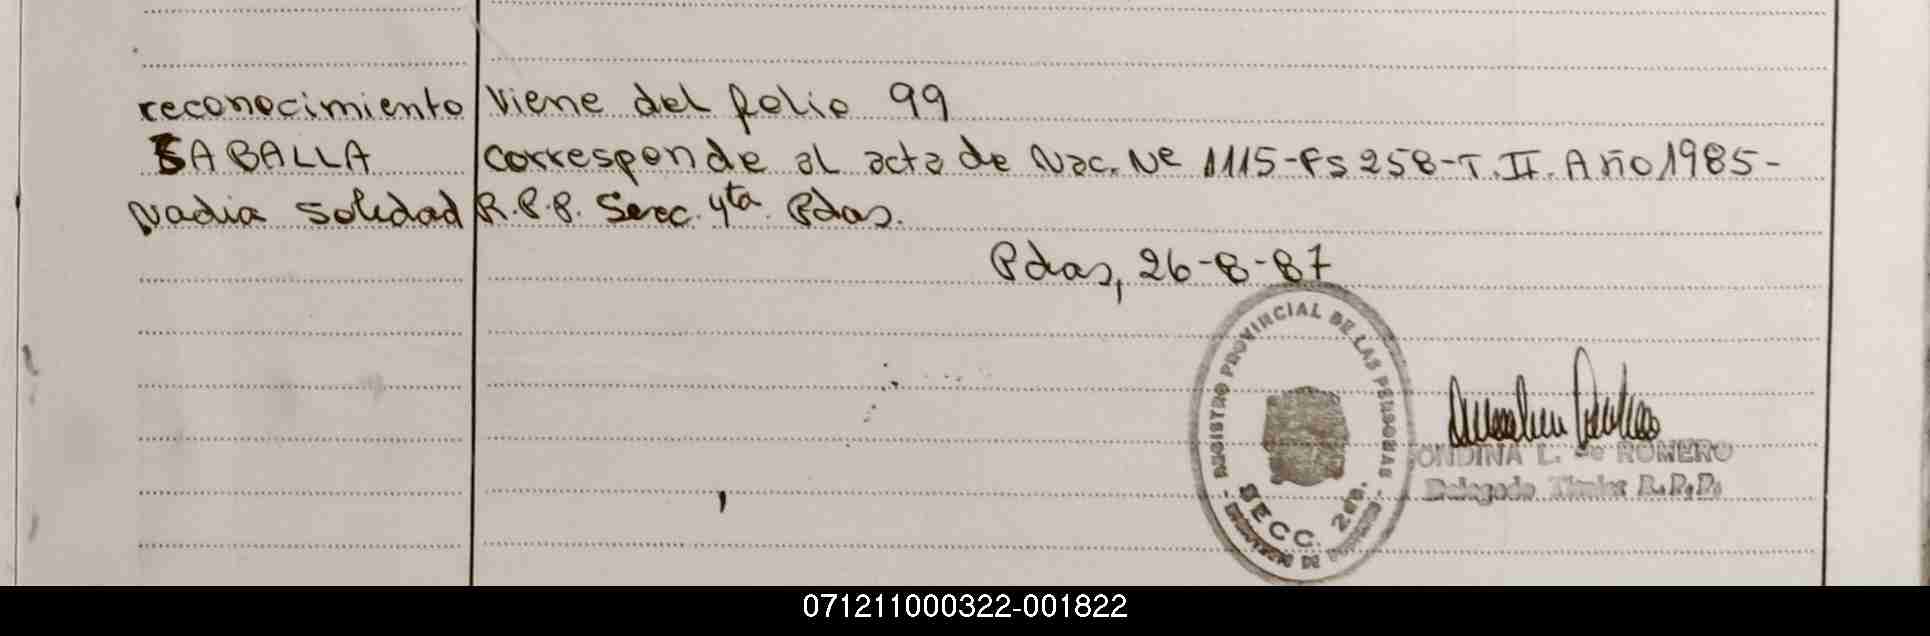 reconocimiento Viene del folio 99
SABALLA corresponde al acta de Nac. Nº 1115-Fs 258-T.II. Año 1985-
Nadia Soledad R.P.P. Secc. 4ta. Pdas.
Pdas, 26-8-87
- REGISTRO PROVINCIAL DE LAS PERSONAS -
SECC. 2da.
ONDINA L. de ROMERO
Delegada Titular R.P.P.
071211000322-001822